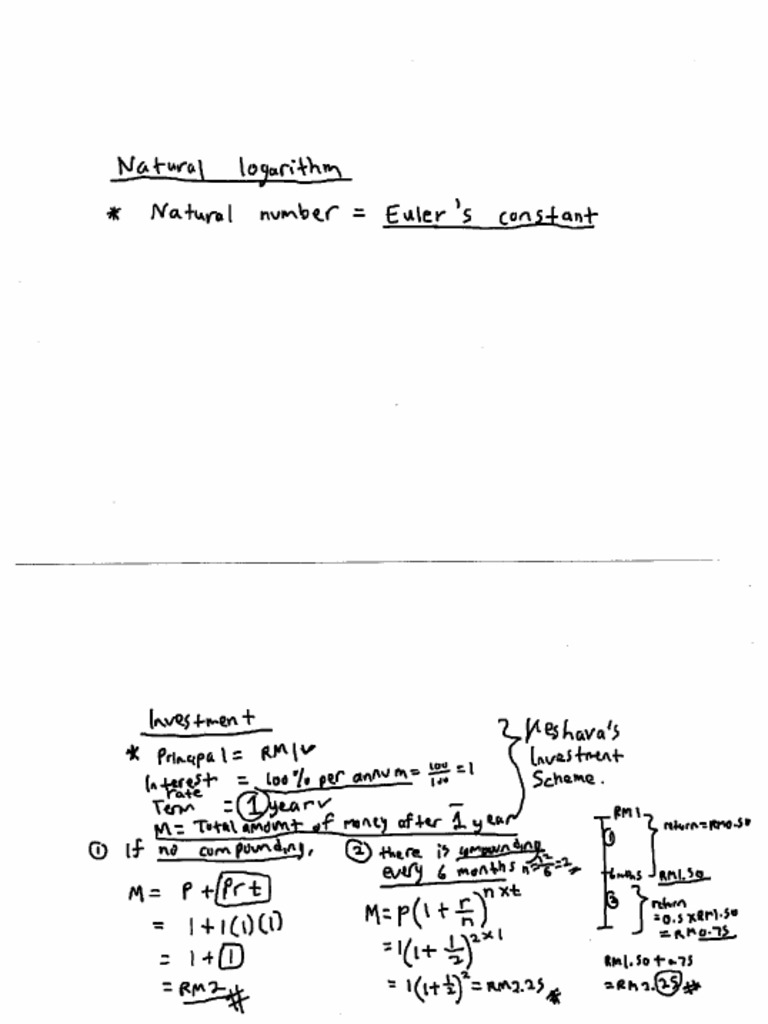 Natural logarithm
* Natural number = Euler's constant
Investment
* Principal = RM1✓
Interest rate = 100% per annum = 100/100 = 1
Term = 1 year✓
M = Total amount of money after 1 year
Keshava's
Investment
Scheme.
① If no compounding,
M = P + Prt
= 1 + 1(1)(1)
= 1 + 1
= RM2 #
② there is compounding
every 6 months n = 12/6 = 2
M = P(1 + r/n)^(n×t)
= 1(1 + 1/2)^(2×1)
= 1(1 + 1/2)^2 = RM2.25
RM1
①
return = RM0.50
6 mths
RM1.50
return
= 0.5 × RM1.50
= RM0.75
RM1.50 + 0.75
= RM2.25 #